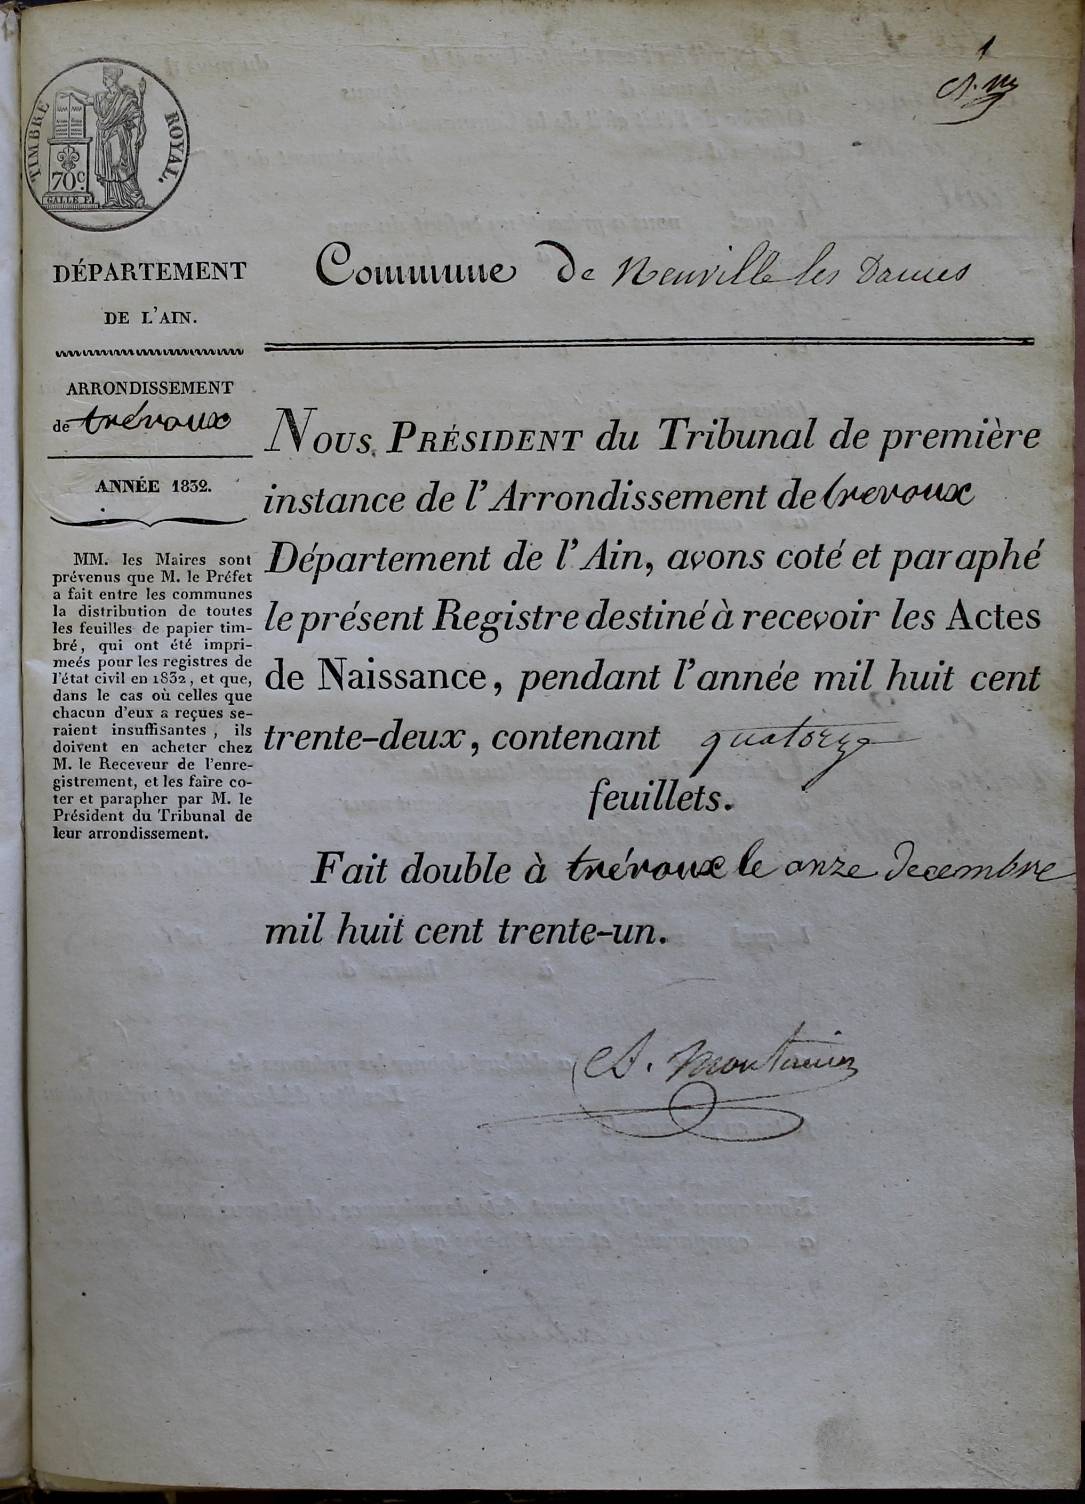 1
TIMBRE ROYAL.
70c.
GALLE F.
DÉPARTEMENT
DE L'AIN.
ARRONDISSEMENT
de trévoux
ANNÉE 1832.
MM. les Maires sont
prévenus que M. le Préfet
a fait entre les communes
la distribution de toutes
les feuilles de papier tim-
bré, qui ont été impri-
meés pour les registres de
l'état civil en 1832, et que,
dans le cas où celles que
chacun d'eux a reçues se-
raient insuffisantes, ils
doivent en acheter chez
M. le Receveur de l'enre-
gistrement, et les faire co-
ter et parapher par M. le
Président du Tribunal de
leur arrondissement.
Commune De Neuville les Dames
NOUS, PRÉSIDENT du Tribunal de première
instance de l'Arrondissement de trevoux
Département de l'Ain, avons coté et paraphé
le présent Registre destiné à recevoir les Actes
de Naissance, pendant l'année mil huit cent
trente-deux, contenant quatorze
feuillets.
Fait double à trévoux le onze Decembre
mil huit cent trente-un.